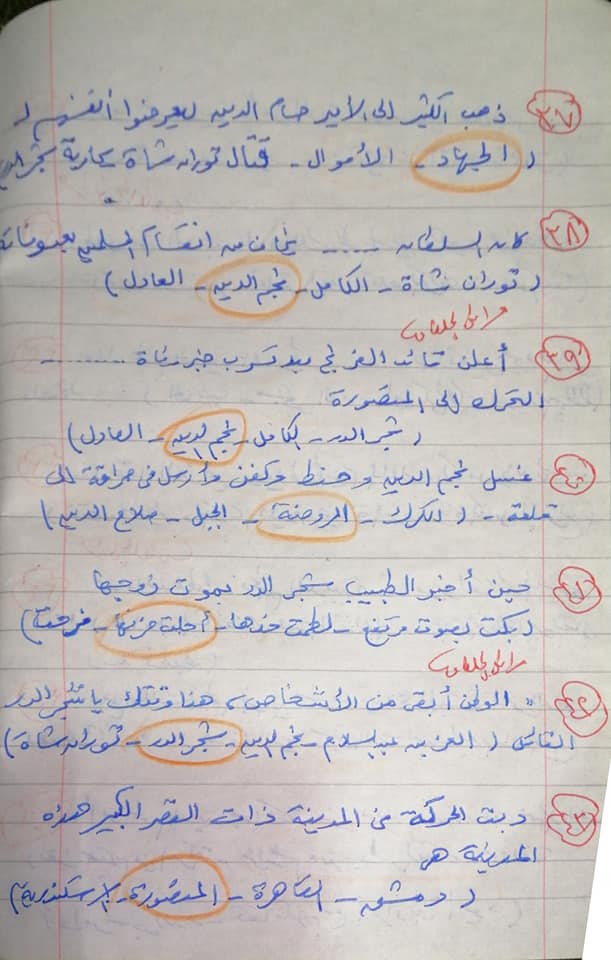 ٣٧ ذهب الكثير إلى الأمير حسام الدين ليعرضوا أنفسهم لـ
( الجهاد - الأموال - قتال توران شاة - محاربة شجر الدر
٣٨ كان السلطان ...... يخاف من انقسام المسلمين بعد وفاته
( توران شاة - الكامل - نجم الدين - العادل )
مراجل الجلعاوى
٣٩ أعلن قائد الفرنج بعد تسرب خبر وفاة ..........
التحرك إلى المنصورة
( شجر الدر - الكامل - نجم الدين - العادل )
٤٠ غسل نجم الدين وحنط وكفن وأرسل في حراقة إلى
قلعة - ( الكرك - الروضة - الجبل - صلاح الدين )
٤١ حين أخبر الطبيب شجر الدر بموت زوجها
( بكت بصوت مرتفع - لطمت خدها - أخفت حزنها - فرحت )
٤٢ " الوطن أبقى من الأشخاص، هذا وقتك يا شجر الدر
القائل ( العز بن عبد السلام - نجم الدين - شجر الدر - توران شاة )
٤٣ دبت الحركة في المدينة ذات القصر الكبير هذه
المدينة هى
( دمشق - القاهرة - المنصورة - الإسكندرية )